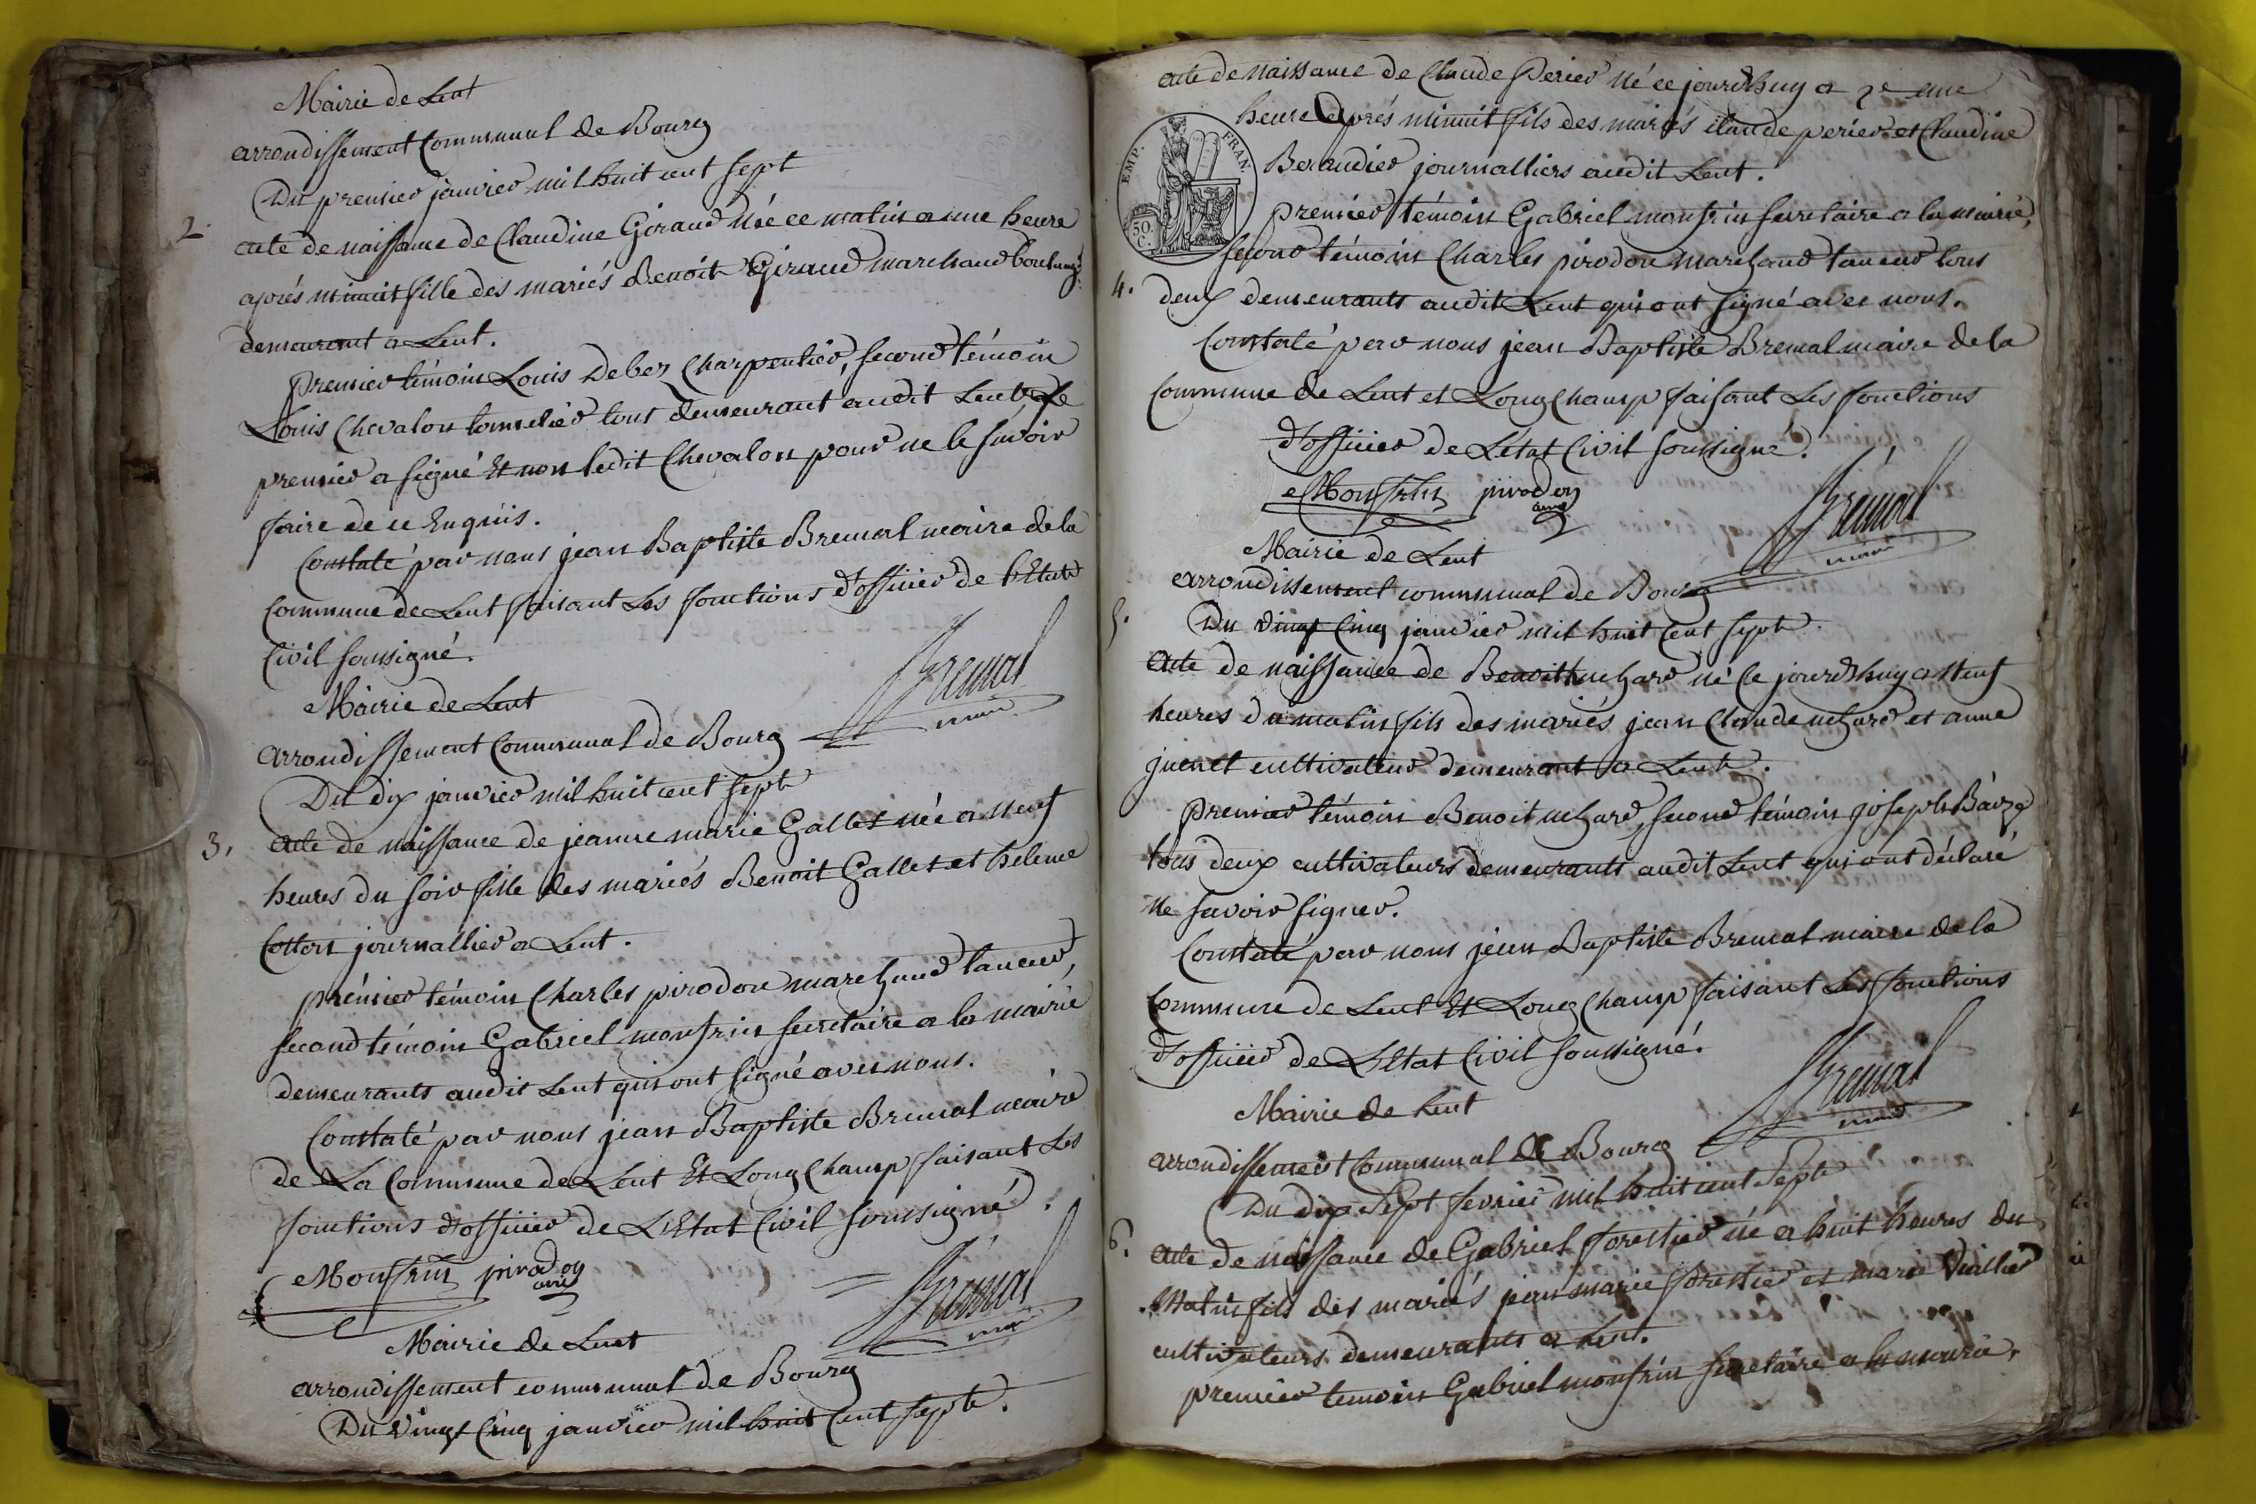 Mairie de Lent
arrondissement Communal de Bourg
Du premier janvier mil huit cent sept
2. acte de naissance de Claudine Giraud née ce matin a une heure
aprés minuit fille des mariés Benoit Giraud marchand
demeurant a Lent.
premier témoin Louis Debez Charpentier, second témoin
Louis Chevalon tonnelier tous demeurant audit Lent, Le
premier a signé Et non ledit Chevalon pour ne le savoir
faire de ce Enquis.
Constaté par nous jean Baptiste Bremal maire de la
Commune de Lent faisant Les fonctions d'officier de l'Etat
Civil soussigné.
Bremal
maire
Mairie de Lent
arrondissement Communal de Bourg
Du dix janvier mil huit cent sept
3. acte de naissance de jeanne marie Gallet née a neuf
heures du soir fille des mariés Benoit Gallet et helene
Cotton journallier a Lent.
prémier témoin Charles pirodon marchand tanneur,
second témoin Gabriel monfrin secretaire a la mairie
demeurants audit Lent qui ont signé avec nous.
Constaté par nous jean Baptiste Bremal maire
de La Commune de Lent Et Longchamp faisant Les
fonctions d'officier de L'Etat Civil soussigné.
Monfrin pirodon
Bremal
maire
Mairie de Lent
arrondissement communal de Bourg
Du Vingt Cinq janvier mil huit Cent sept.
acte de naissance de Claude Perier né ce jourdhuy a une
heure aprés minuit fils des mariés claude perier et Claudine
EMP. FRAN.
50. C.
Beraudier journalliers audit Lent.
premier témoin Gabriel monfrin secretaire a la mairie,
second témoin Charles pirodon marchand tanneur tous
4. deux demeurants audit Lent qui ont signé avec nous.
Constaté par nous jean Baptiste Bremal maire de la
Commune de Lent et Longchamp faisant Les fonctions
d'officier de L'Etat Civil soussigné.
Monfrin pirodon
Bremal
maire
Mairie de Lent
arrondissement communal de Bourg
5. Du Vingt Cinq janvier mil huit Cent sept.
Acte de naissance de Benoit uchard né Ce jourdhuy a Neuf
heures du matin fils des mariés jean Claude uchard et anne
guenet cultivateur demeurant a Lent.
Premier témoin Benoit uchard, second témoin joseph
tous deux cultivateurs demeurants audit Lent qui ont déclaré
Ne savoir signer.
Constaté par nous jean Baptiste Bremal maire de la
Commune de Lent Et Longchamp faisant Les fonctions
d'officier de L'Etat Civil soussigné.
Bremal
maire
Mairie de Lent
arrondissement Communal de Bourg
Du dix Sept fevrier mil huit cent Sept
6. Acte de naissance de Gabriel forestier né a huit heures du
Matin fils des mariés jean marie forestier et marie Viallier
cultivateurs demeurants a Lent.
premier temoin Gabriel monfrin secretaire a la mairie,